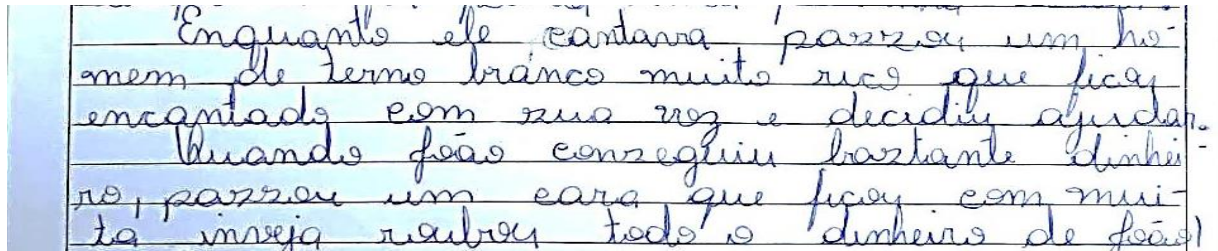 Enquanto ele cantava, passou um ho-
mem de terno branco muito rico que ficou
encantado com sua voz e decidiu ajudar.
Quando João conseguiu bastante dinhei-
ro, passou um cara que ficou com mui-
ta inveja roubou todo o dinheiro de João!